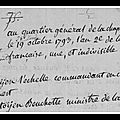 au quartier général de la chap
le 19 octobre 1793, l'an 2e de la
française, une, et indivisible
Léchelle commandant en c
est
bouchotte ministre de la